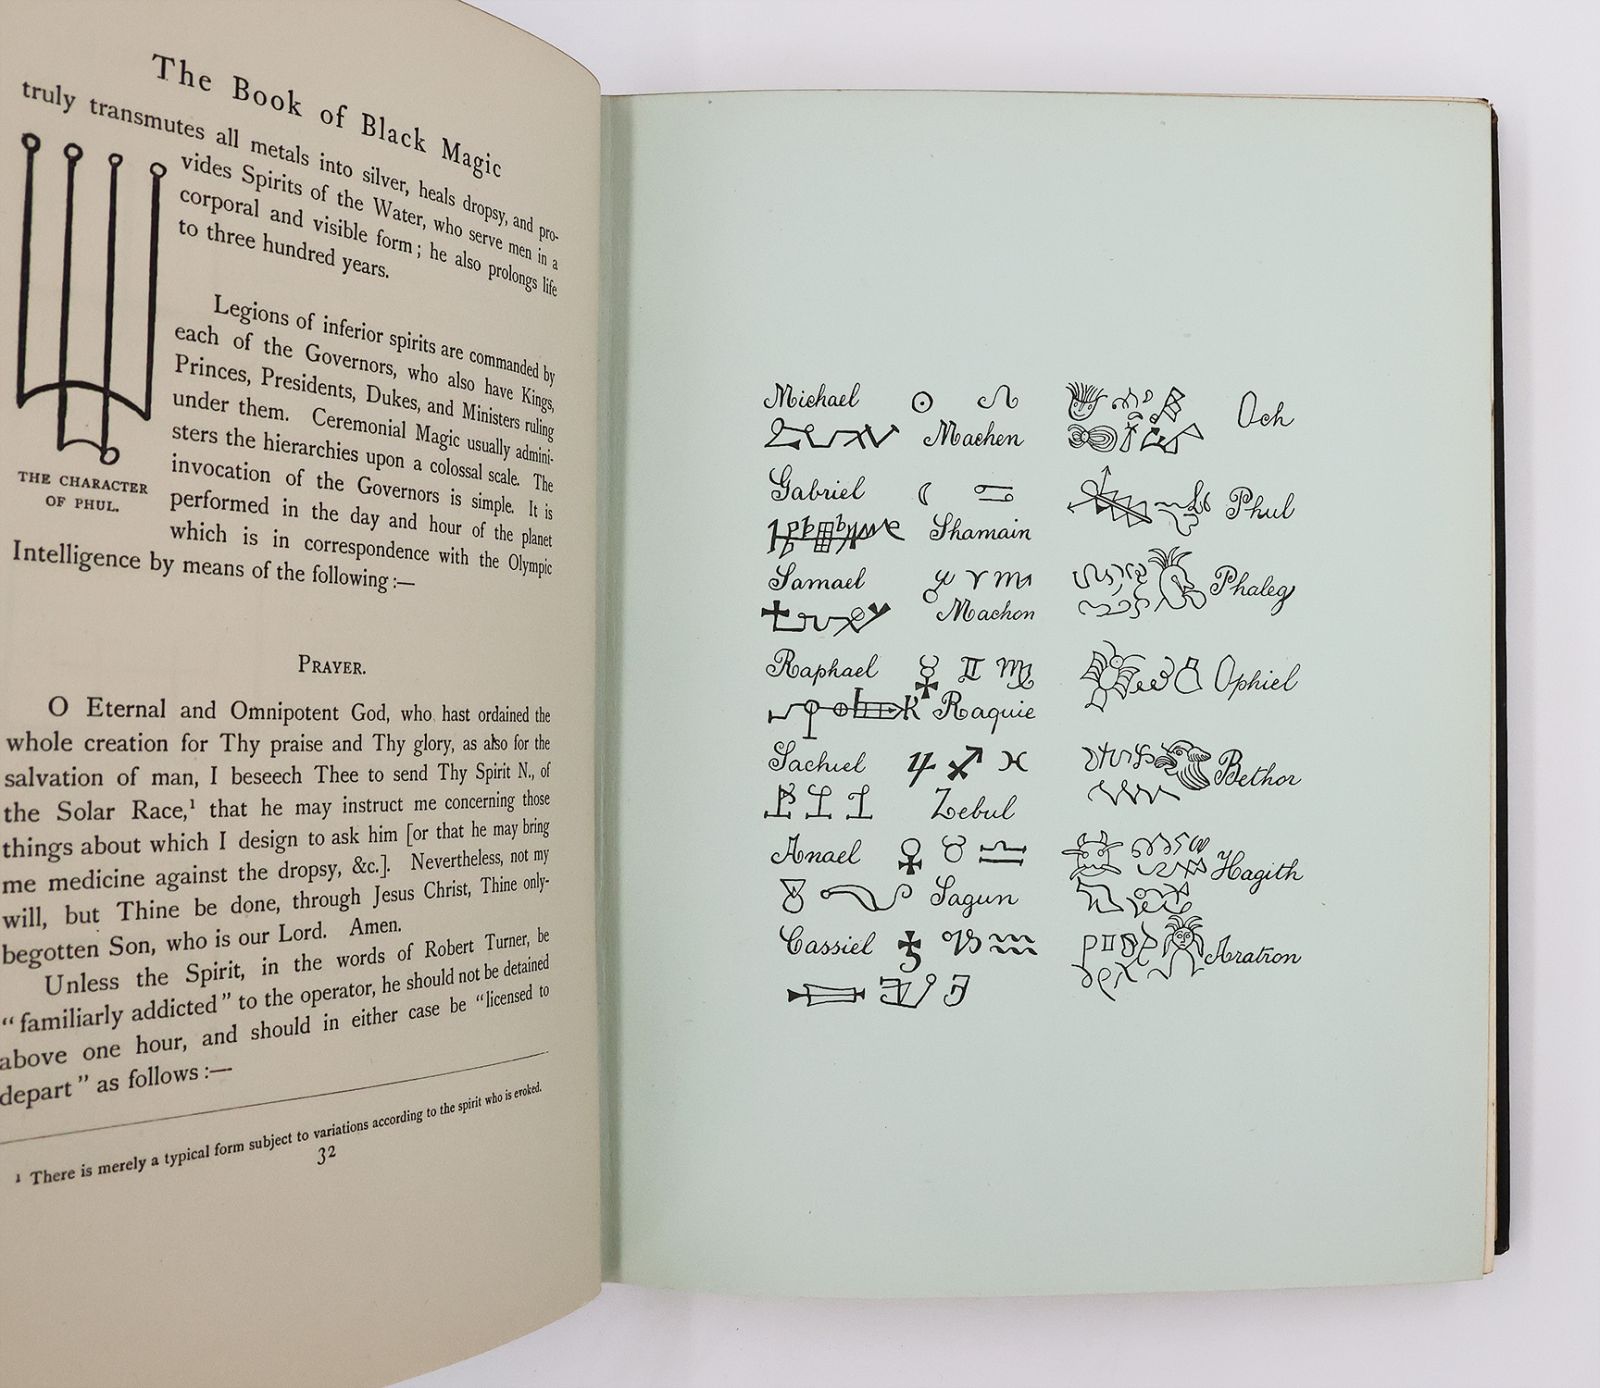 The Book of Black Magic
truly transmutes all metals into silver, heals dropsy, and pro-
vides Spirits of the Water, who serve men in a
corporal and visible form; he also prolongs life
to three hundred years.
THE CHARACTER
OF PHUL.
Legions of inferior spirits are commanded by
each of the Governors, who also have Kings,
Princes, Presidents, Dukes, and Ministers ruling
under them. Ceremonial Magic usually admini-
sters the hierarchies upon a colossal scale. The
invocation of the Governors is simple. It is
performed in the day and hour of the planet
which is in correspondence with the Olympic
Intelligence by means of the following:—
PRAYER.
O Eternal and Omnipotent God, who hast ordained the
whole creation for Thy praise and Thy glory, as also for the
salvation of man, I beseech Thee to send Thy Spirit N., of
the Solar Race,¹ that he may instruct me concerning those
things about which I design to ask him [or that he may bring
me medicine against the dropsy, &c.]. Nevertheless, not my
will, but Thine be done, through Jesus Christ, Thine only-
begotten Son, who is our Lord. Amen.
Unless the Spirit, in the words of Robert Turner, be
“familiarly addicted” to the operator, he should not be detained
above one hour, and should in either case be “licensed to
depart” as follows:—
¹ There is merely a typical form subject to variations according to the spirit who is evoked.
32
Michael ☉ ♌ Och
Machen
Gabriel ☾ ♋ Phul
Shamain
Samael ♂ ♈ ♏ Phaleg
Machon
Raphael ☿ ♊ ♍ Ophiel
Raquie
Sachiel ♃ ♐ ♓ Bethor
Zebul
Anael ♀ ♉ ♎ Hagith
Sagun
Cassiel ♄ ♑ ♒ Aratron